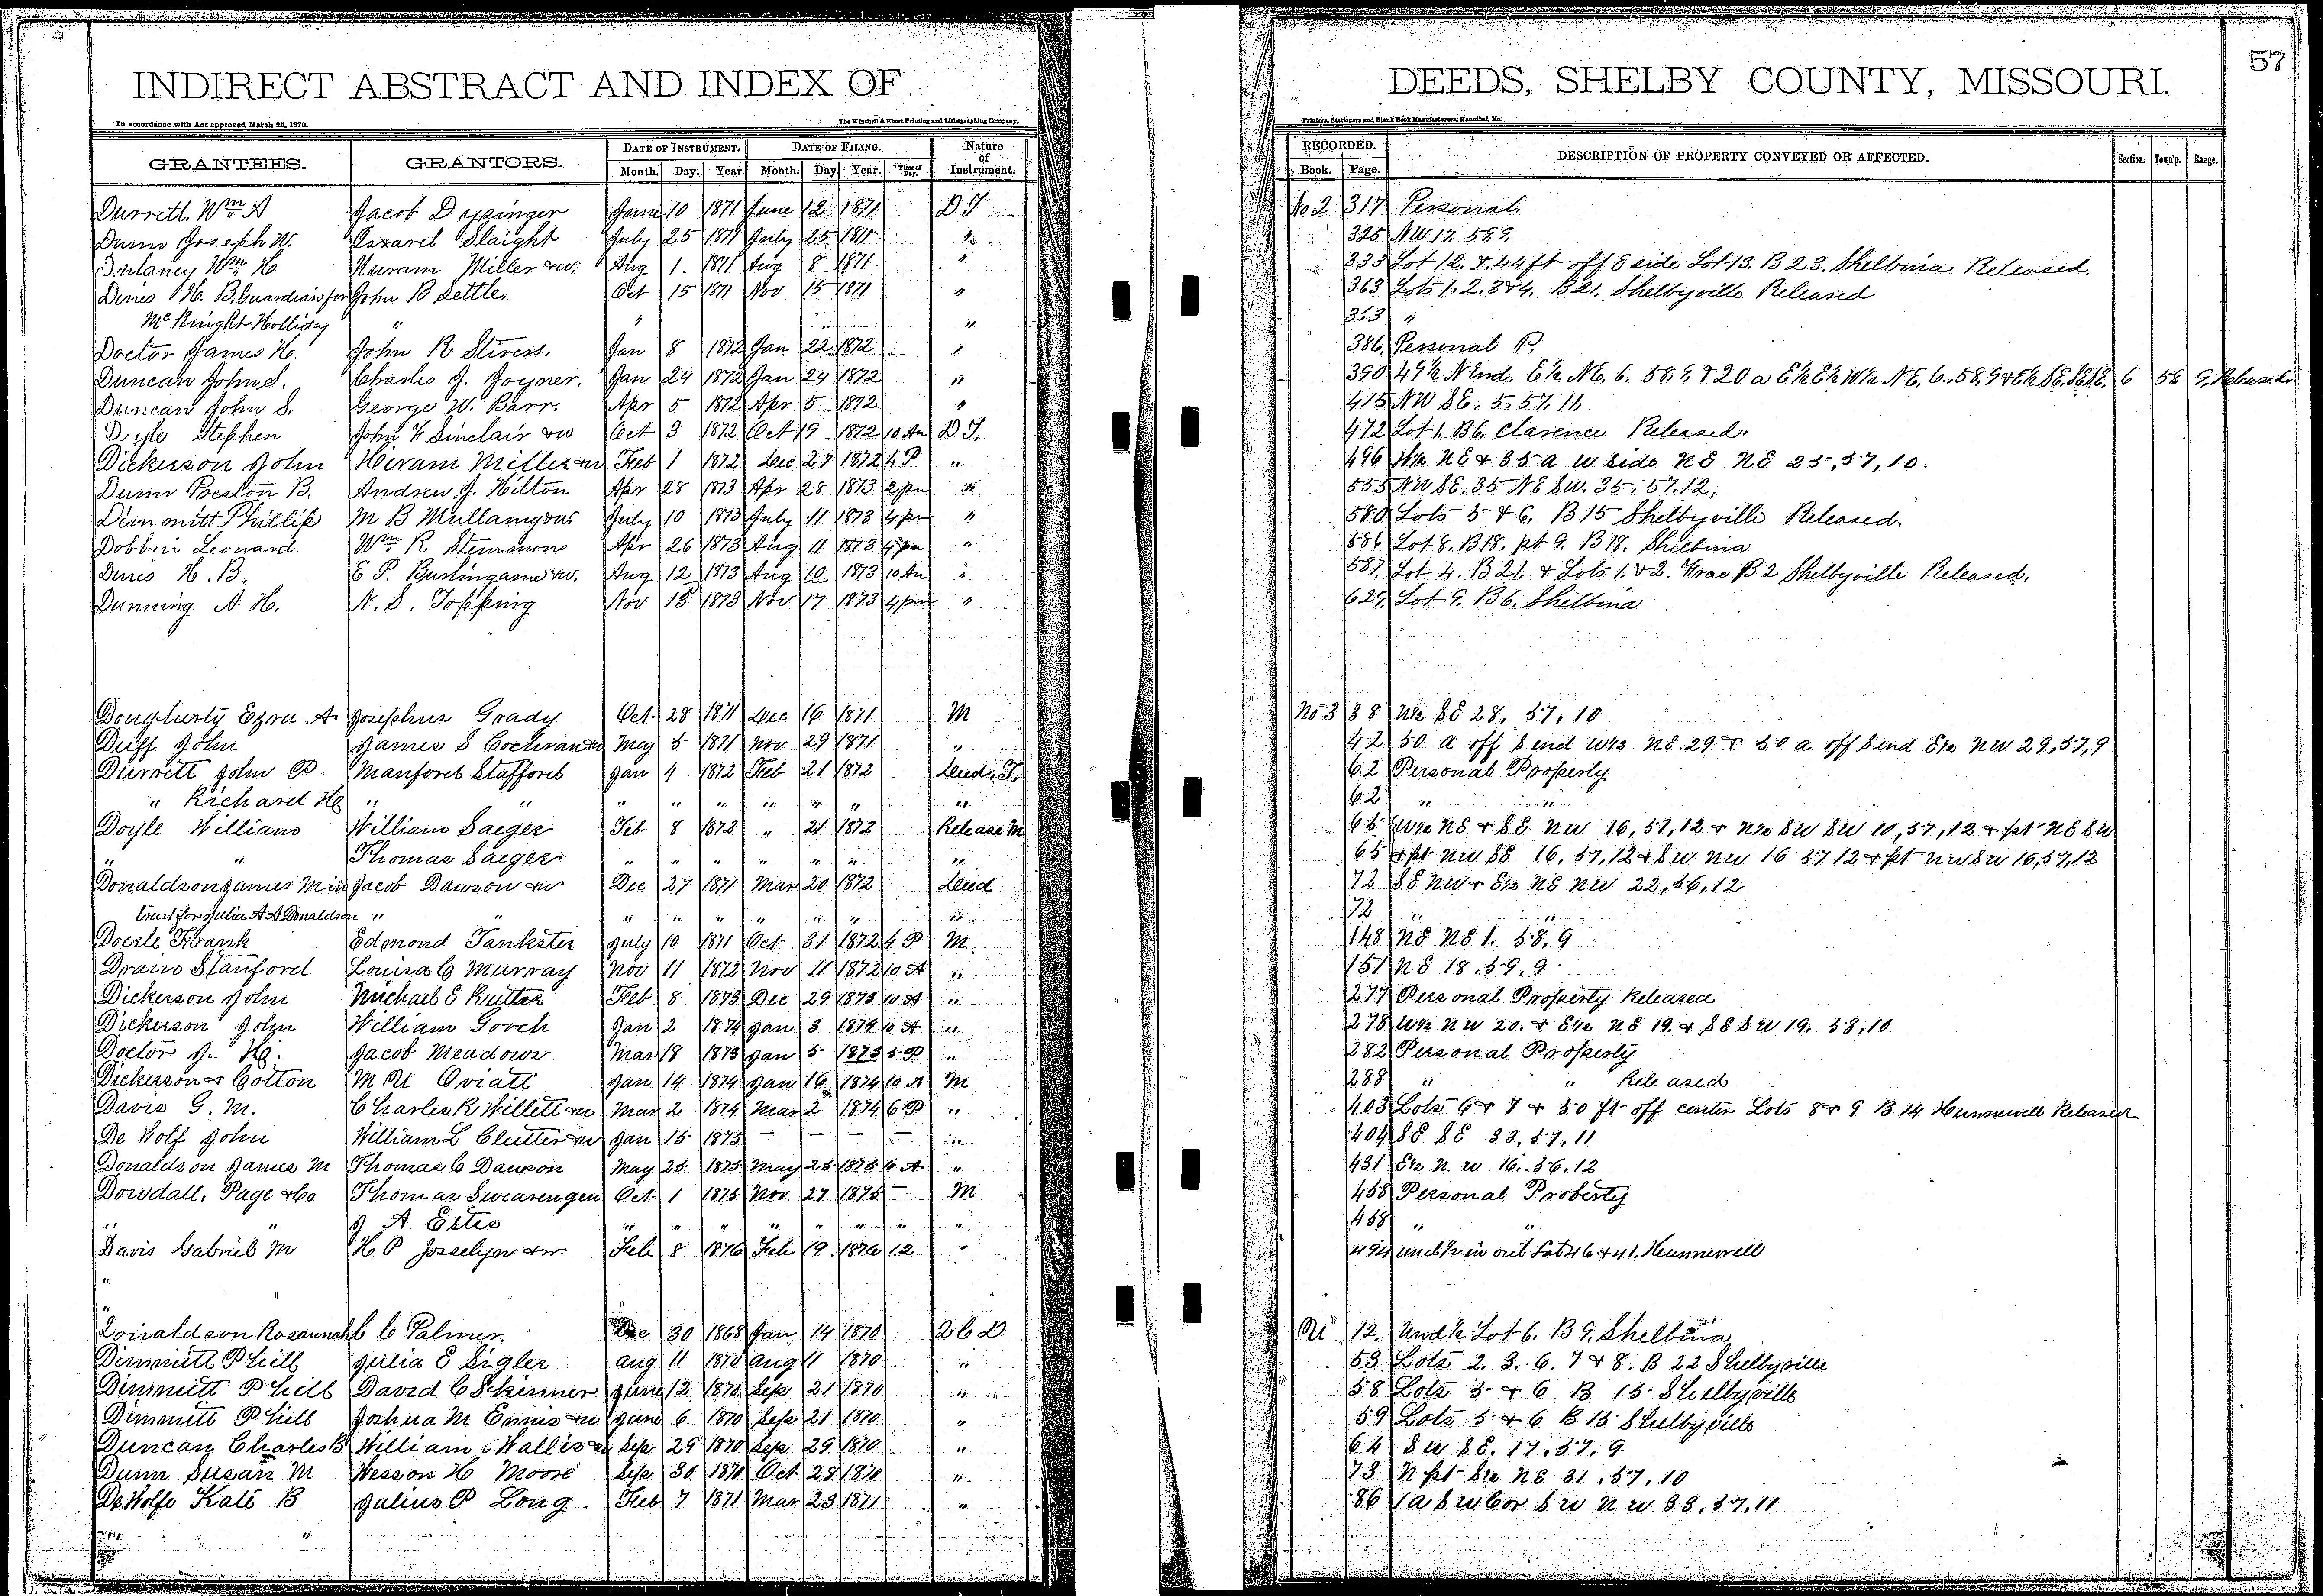 57
INDIRECT ABSTRACT AND INDEX OF DEEDS, SHELBY COUNTY, MISSOURI.
In accordance with Act approved March 25, 1870. The Winchell & Ebert Printing and Lithographing Company, Printers, Stationers and Blank Book Manufacturers, Hannibal, Mo.
GRANTEES. GRANTORS. DATE OF INSTRUMENT. DATE OF FILING. Nature of Instrument. RECORDED. DESCRIPTION OF PROPERTY CONVEYED OR AFFECTED. Section. Town'p. Range.
Month. Day. Year. Month. Day. Year. Time of Day. Book. Page.
Durrett Wm A Jacob Dysinger June 10 1871 June 12 1871 D T No 2 317 Personal
Dunn Joseph W. Israel Slaight July 25 1871 July 25 1871 " " 325 NW 17. 59.9.
Dulaney Wm H Huram Miller &w. Aug 1. 1871 Aug 8 1871 " 333 Lot 12. & 44 ft off E side Lot 13. B 23. Shelbina Released.
Dines H. B. Guardian for John B Settles Oct 15 1871 Nov 15 1871 " 363 Lots 1. 2. 3 & 4. B 21. Shelbyville Released
McKnight Holliday " " " 363 "
Doctor James H. John R Stivers. Jan 8 1872 Jan 22 1872 " 386. Personal P.
Duncan John S. Charles J. Joyner. Jan 24 1872 Jan 24 1872 " 390 49½ N End. E½ NE. 6. 58. 9. & 20 a E½ E½ W½ NE. 6. 58. 9 & E½ SE. SE SE. 6 58 9. Released.
Duncan John S. George W. Barr. Apr 5 1872 Apr 5 1872 " 415 NW SE. 5. 57. 11.
Dryle Stephen John F Sinclair &w Oct 3 1872 Oct 19 1872 10 Am D T. 472 Lot 1. B 6. Clarence Released.
Dickerson John Hiram Miller &w Feb 1 1872 Dec 27 1872 4 P " 496 W½ NE & 35 a W side NE NE 25, 57, 10.
Dunn Preston B. Andrew J. Hilton Apr 28 1873 Apr 28 1873 2 pm " 555 NW SE. 35 NE SW. 35. 57. 12.
Dimmitt Phillip M B Mullany &w July 10 1873 July 11 1873 4 pm " 580 Lots 5 & 6. B 15 Shelbyville Released.
Dobbin Leonard. Wm R Stemmons Apr 26 1873 Aug 11 1873 4 pm " 586 Lot 8. B 18. pt 9. B 18. Shelbina
Dines H. B. E P. Burlingame &w. Aug 12 1873 Aug 12 1873 10 Am " 587. Lot 4. B 21. & Lots 1. & 2. B 2 Shelbyville Released.
Dunning A. H. N. S. Topping Nov 15 1873 Nov 17 1873 4 pm " 629. Lot 9. B 6. Shelbina
Dougherty Ezra A. Josephus Grady Oct. 28 1871 Dec 16 1871 M No 3 38 N½ SE 28, 57, 10
Duff John James S Cochran &w May 5 1871 Nov 29 1871 " 42 50 a off S end W½ NE. 29 & 50 a off S end E½ NW 29, 57, 9
Durrett John P Manford Stafford Jan 4 1872 Feb 21 1872 Deed. T. 62 Personal Property
" Richard H " " " " " " " " " 62 " "
Doyle William William Saeger Feb 8 1872 " 21 1872 Release M 65 W½ NE & SE NW 16, 57, 12 & N½ SW SW 10, 57, 12 & pt NE SW
" " Thomas Saeger " " " " " " " 65 & pt NW SE 16. 57. 12 & SW NW 16 57 12 & pt NW SW 16, 57, 12
Donaldson James M in Jacob Dawson &w Dec 27 1871 Mar 20 1872 Deed 72 SE NW & E½ NE NW 22, 56, 12
trust for Julia A A Donaldson " " " " " " " " " 72 " "
Doerle Frank Edmond Tankster July 10 1871 Oct 31 1872 4 P M 148 NE NE 1. 58, 9
Drain Stanford Louisa C Murray Nov 11 1872 Nov 11 1872 10 A " 151 NE 18. 59. 9.
Dickerson John Michael E Rutter Feb 8 1873 Dec 29 1873 10 A " 277 Personal Property Released
Dickerson John William Gooch Jan 2 1874 Jan 3 1874 10 A " 278 W½ NW 20. & E½ NE 19. & SE SW 19. 58, 10
Doctor J. H. Jacob Meadows Mar 18 1873 Jan 5 1873 5 P " 282 Personal Property
Dickerson & Cotton M U Oviatt Jan 14 1874 Jan 16 1874 10 A M 288 " " Released
Davis G. M. Charles R Willett &w Mar 2 1874 Mar 2 1874 6 P " 403 Lots 6 & 7 & 50 ft off center Lots 8 & 9 B 14 Hunnewell Released
De Wolf John William L Clutter &w Jan 15 1875 — — — — " 404 SE SE 33, 57, 11
Donaldson James M Thomas C Dawson May 25 1875 May 25 1875 10 A " 431 E½ N. W 16. 56. 12
Dowdall, Page & Co Thomas Swearengen Oct 1 1875 Nov 27 1875 — M 458 Personal Property
" " J A Estes " " " " " " " " 458 " "
Davis Gabriel M H P Josselyn &w. Feb 8 1876 Feb 19 1876 12 " 494 und ½ in out Lot 46 & 41. Hunnewell
"
"
Donaldson Rosannah C C Palmer. Dec 30 1868 Jan 14 1870 2 C D 12. Und ½ Lot 6. B 9. Shelbina
Dimmitt Phill Julia E Sigler Aug 11 1870 Aug 11 1870 " 53 Lots 2. 3. 6. 7 & 8. B 22 Shelbyville
Dimmitt Phill David C Skinner June 12 1870 Sep 21 1870 " 58 Lots 5 & 6 B 15 Shelbyville
Dimmitt Phill Joshua M Ennis &w June 6 1870 Sep 21 1870 " 59 Lots 5 & 6 B 15 Shelbyville
Duncan Charles B William Wallis &w Sep 29 1870 Sep 29 1870 " 64 SW SE. 17. 57. 9
Dunn Susan M Wesson H Moore Sep 30 1870 Oct 28 1870 " 73 N pt S½ NE 31. 57, 10
DeWolfe Kate B Julius P Long Feb 7 1871 Mar 23 1871 " 86 1 a SW Cor SW NW 33, 57, 11
" "